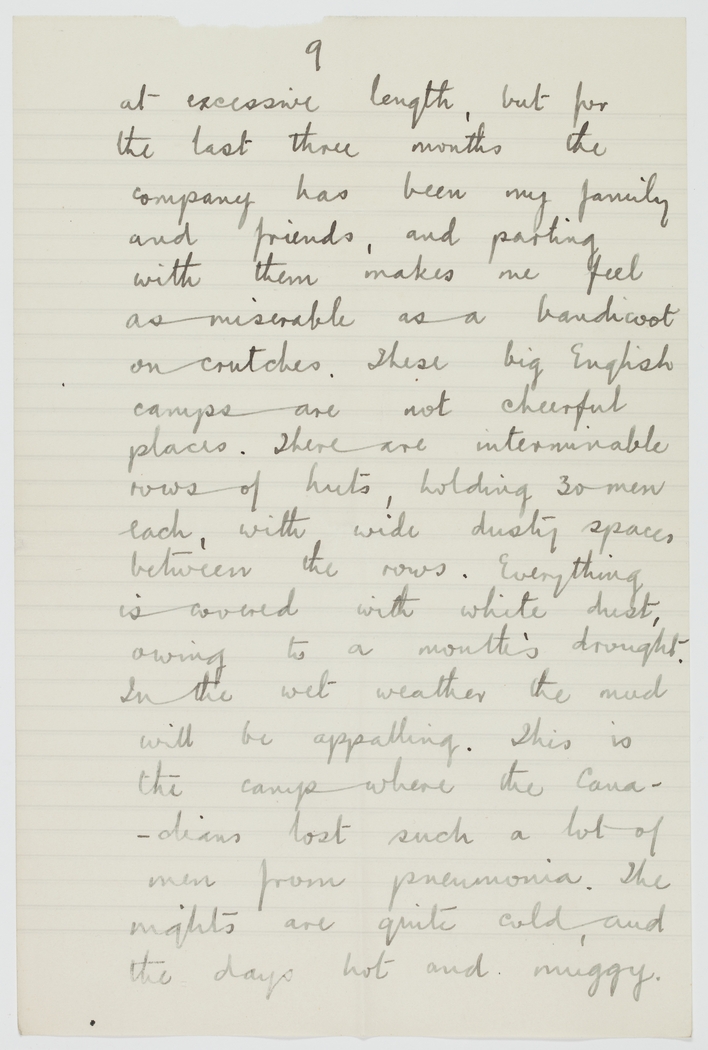 9
at excessive length, but for
the last three months the
company has been my family
and friends, and parting
with them makes me feel
as miserable as a bandicoot
on crutches. These big English
camps are not cheerful
places. There are interminable
rows of huts, holding 30 men
each, with wide dusty spaces
between the rows. Everything
is covered with white dust,
owing to a month's drought.
In the wet weather the mud
will be appalling. This is
the camp where the Cana-
-dians lost such a lot of
men from pneumonia. The
nights are quite cold, and
the days hot and muggy.